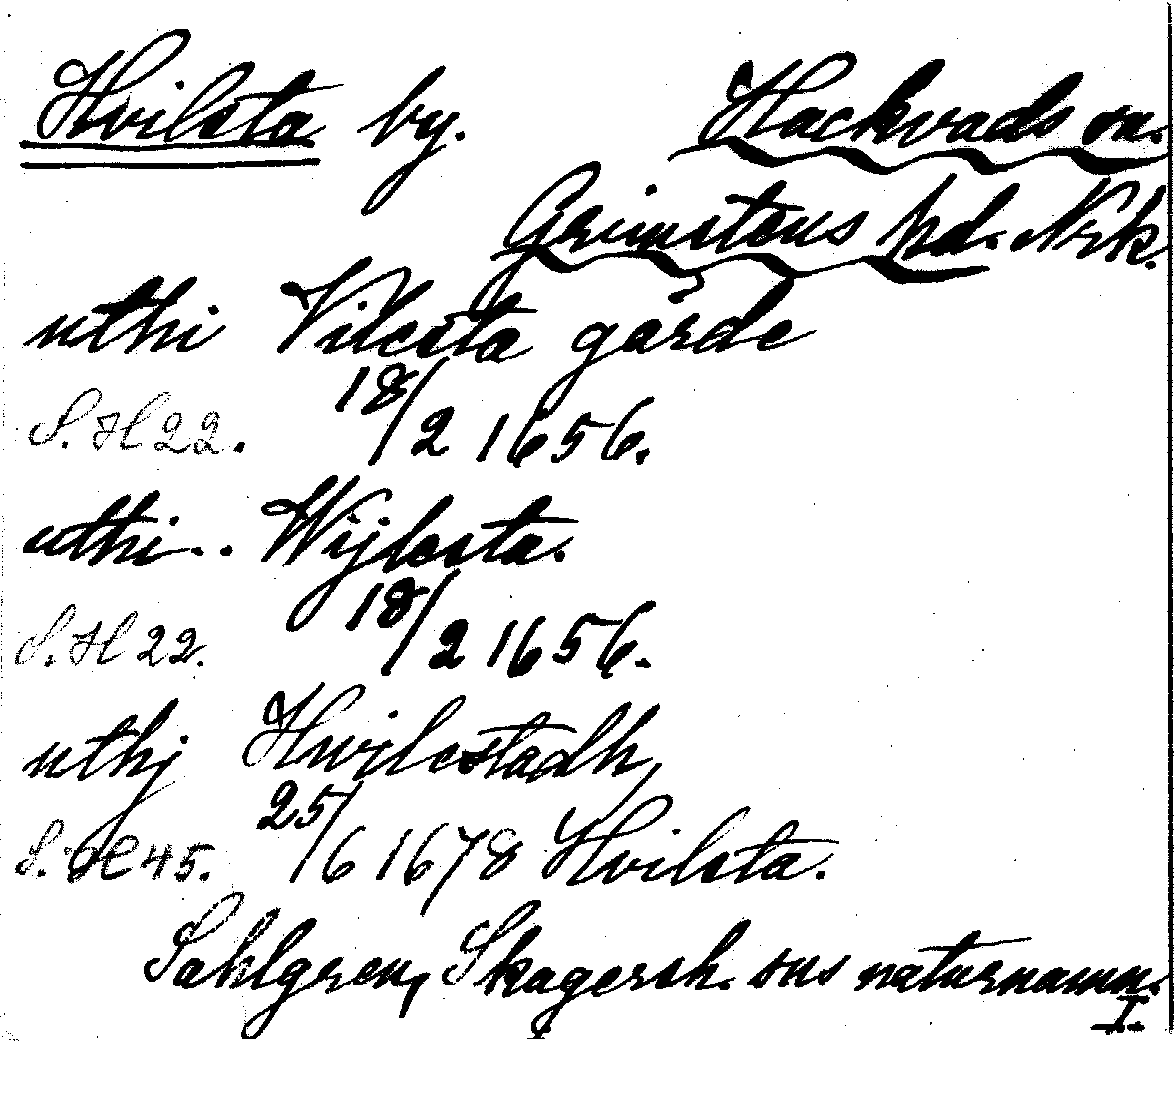 Hvilsta by. Hackvads sn.
Grimstens hd. Nrk.
uthi Vilesta gärde
S. H 22. 18/2 1656.
uthi... Wijlesta.
S. H 22. 18/2 1656.
uthj Hwilestadh,
S. H 45. 25/6 1678 Hvilsta.
Sahlgren, Skagersh. sns naturnamn.
I.